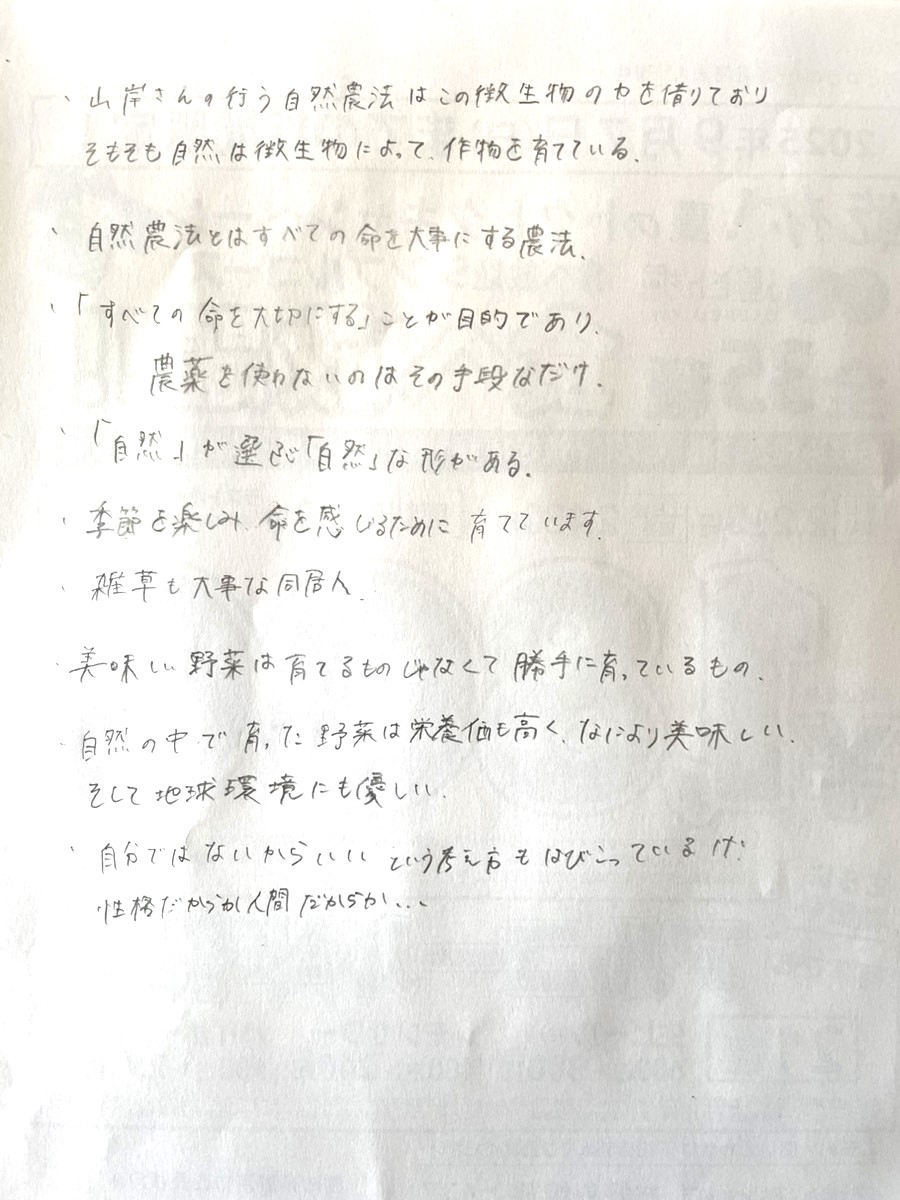 ・山岸さんの行う自然農法はこの微生物の力を借りており
そもそも自然は微生物によって、作物を育てている。
・自然農法とはすべての命を大事にする農法。
・「すべての命を大切にする」ことが目的であり、
農薬を使わないのはその手段なだけ。
・「自然」が選ぶ「自然」な形がある。
・季節を楽しみ、命を感じるために育てています。
・雑草も大事な同居人。
・美味しい野菜は育てるものじゃなくて勝手に育っているもの。
・自然の中で育った野菜は栄養価も高く、なにより美味しい。
そして地球環境にも優しい。
・自分ではないからいい という考え方もはびこっているけど
性格だからか人間だからか...